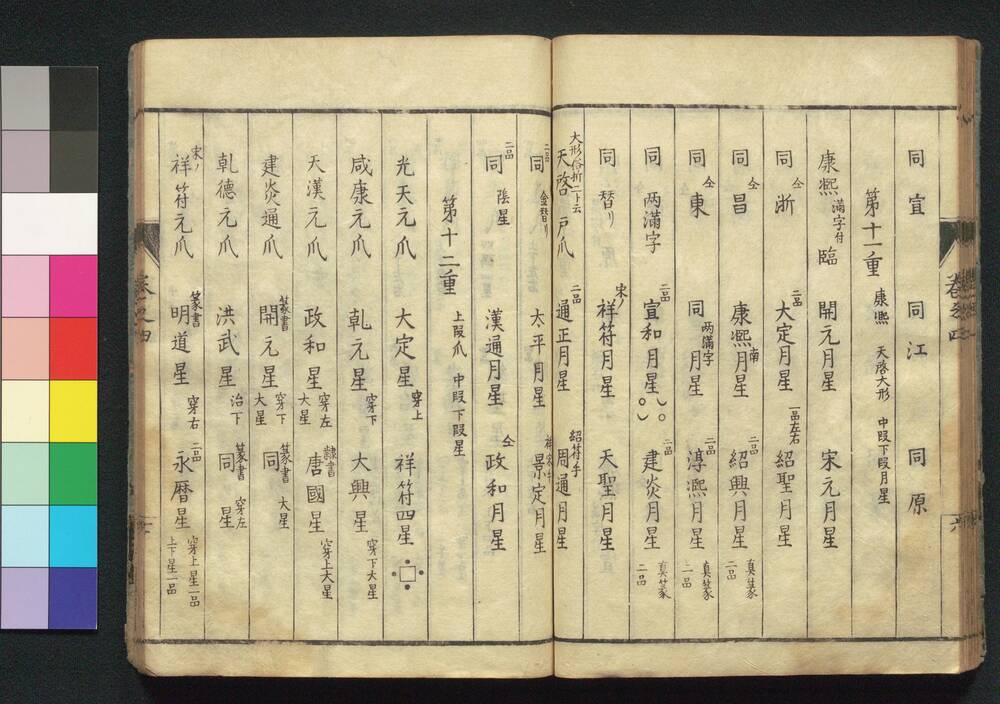 同宜 同江 同原
第十一重 康熙 天啓大形 中叚下叚月星
康熙 滿字付 臨 開元月星 宋元月星
同 仝 浙 二品 大定月星 一品左右 紹聖月星
同 仝 昌 康熙月星 南 二品 紹興月星 真篆 二品
同 仝 東 同 两滿字 月星 二品 淳熙月星 真篆 二品
同 两滿字 二品 宣和月星 二品 建炎月星 真篆 二品
同 替リ 宋ノ 祥符月星 天聖月星
大形俗折二ト云 天啓 戸爪 二品 通正月星 紹符手 周通月星
二品 同 金替リ 太平月星 景定月星
二品 同 陰星 漢通月星 仝 政和月星
第十二重 上叚爪 中叚下叚星
光天元爪 大定星 穿上 祥符四星
咸康元爪 乹元星 穿下 大興星 穿下大星
天漢元爪 政和星 穿左 大星 隷書 唐國星 穿上大星
建炎通爪 篆書 開元星 穿下 大星 篆書 同 大星
乹德元爪 洪武星 治下 篆書 同星 穿左
宋ノ 祥符元爪 篆書 明道星 穿右 二品 永暦星 穿上星一品 上下星一品
卷之四
六
卷之四